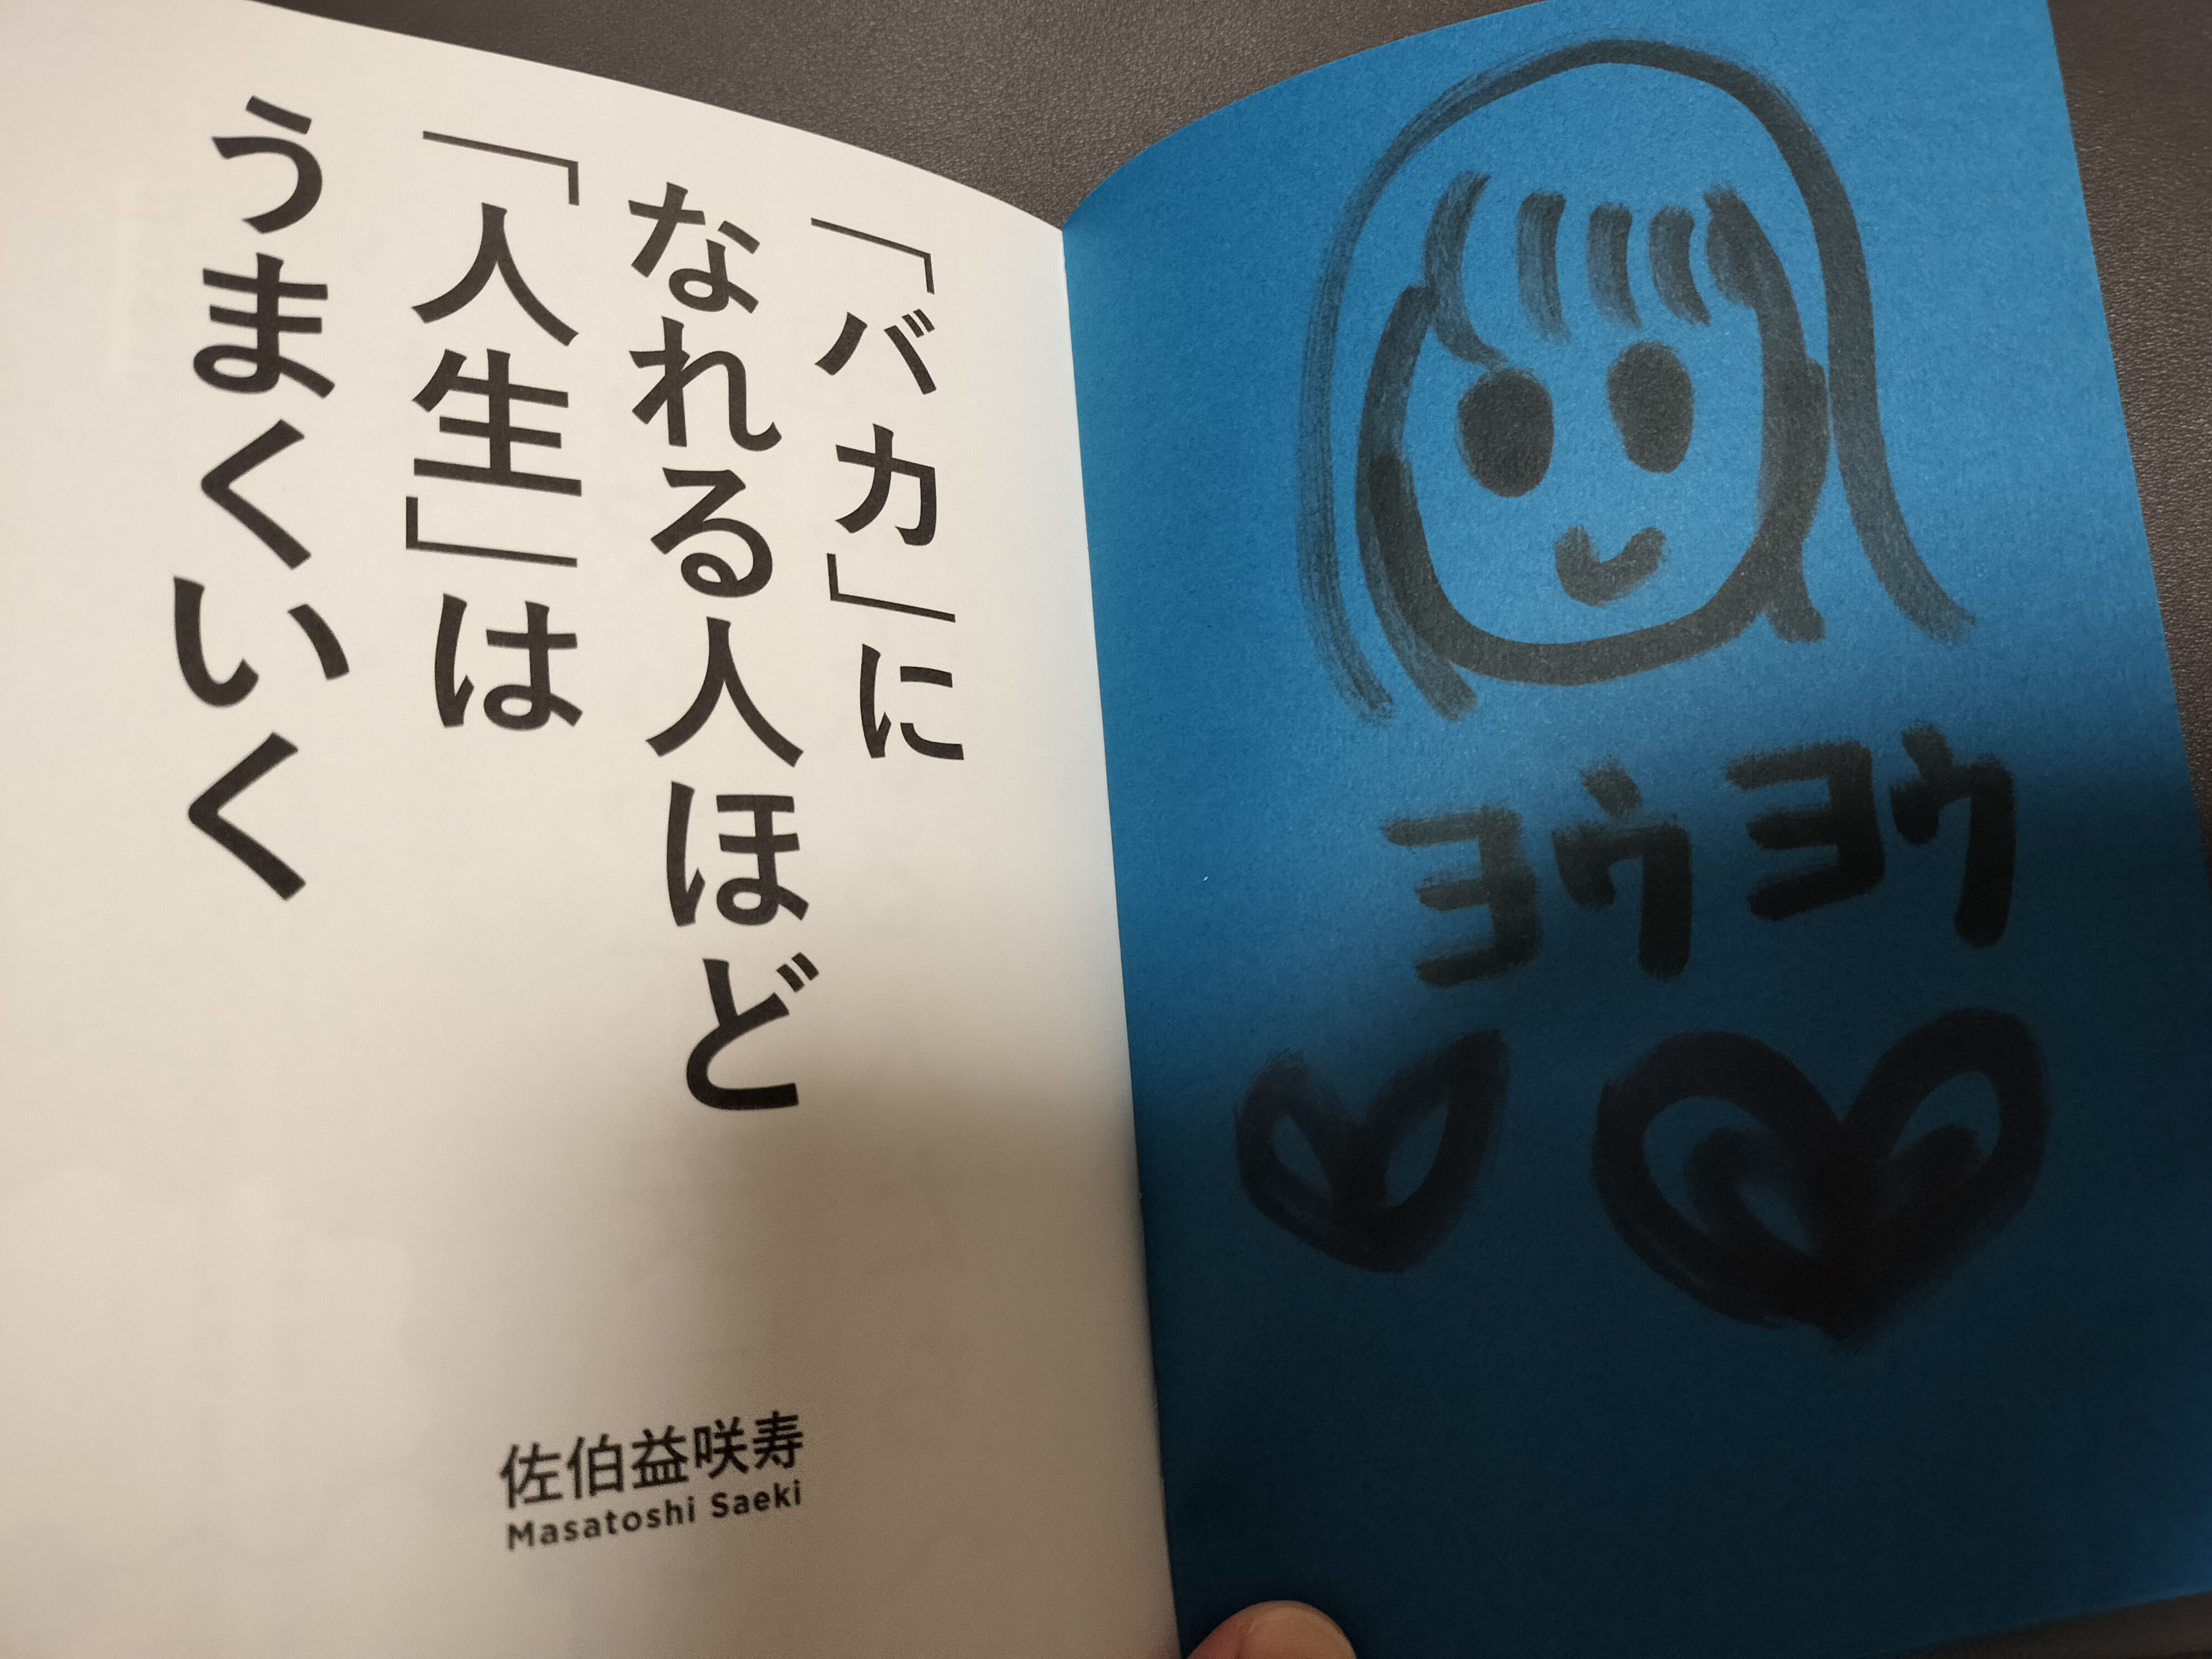 「バカ」に
なれる人ほど
「人生」は
うまくいく
佐伯益咲寿
Masatoshi Saeki
ヨウヨウ